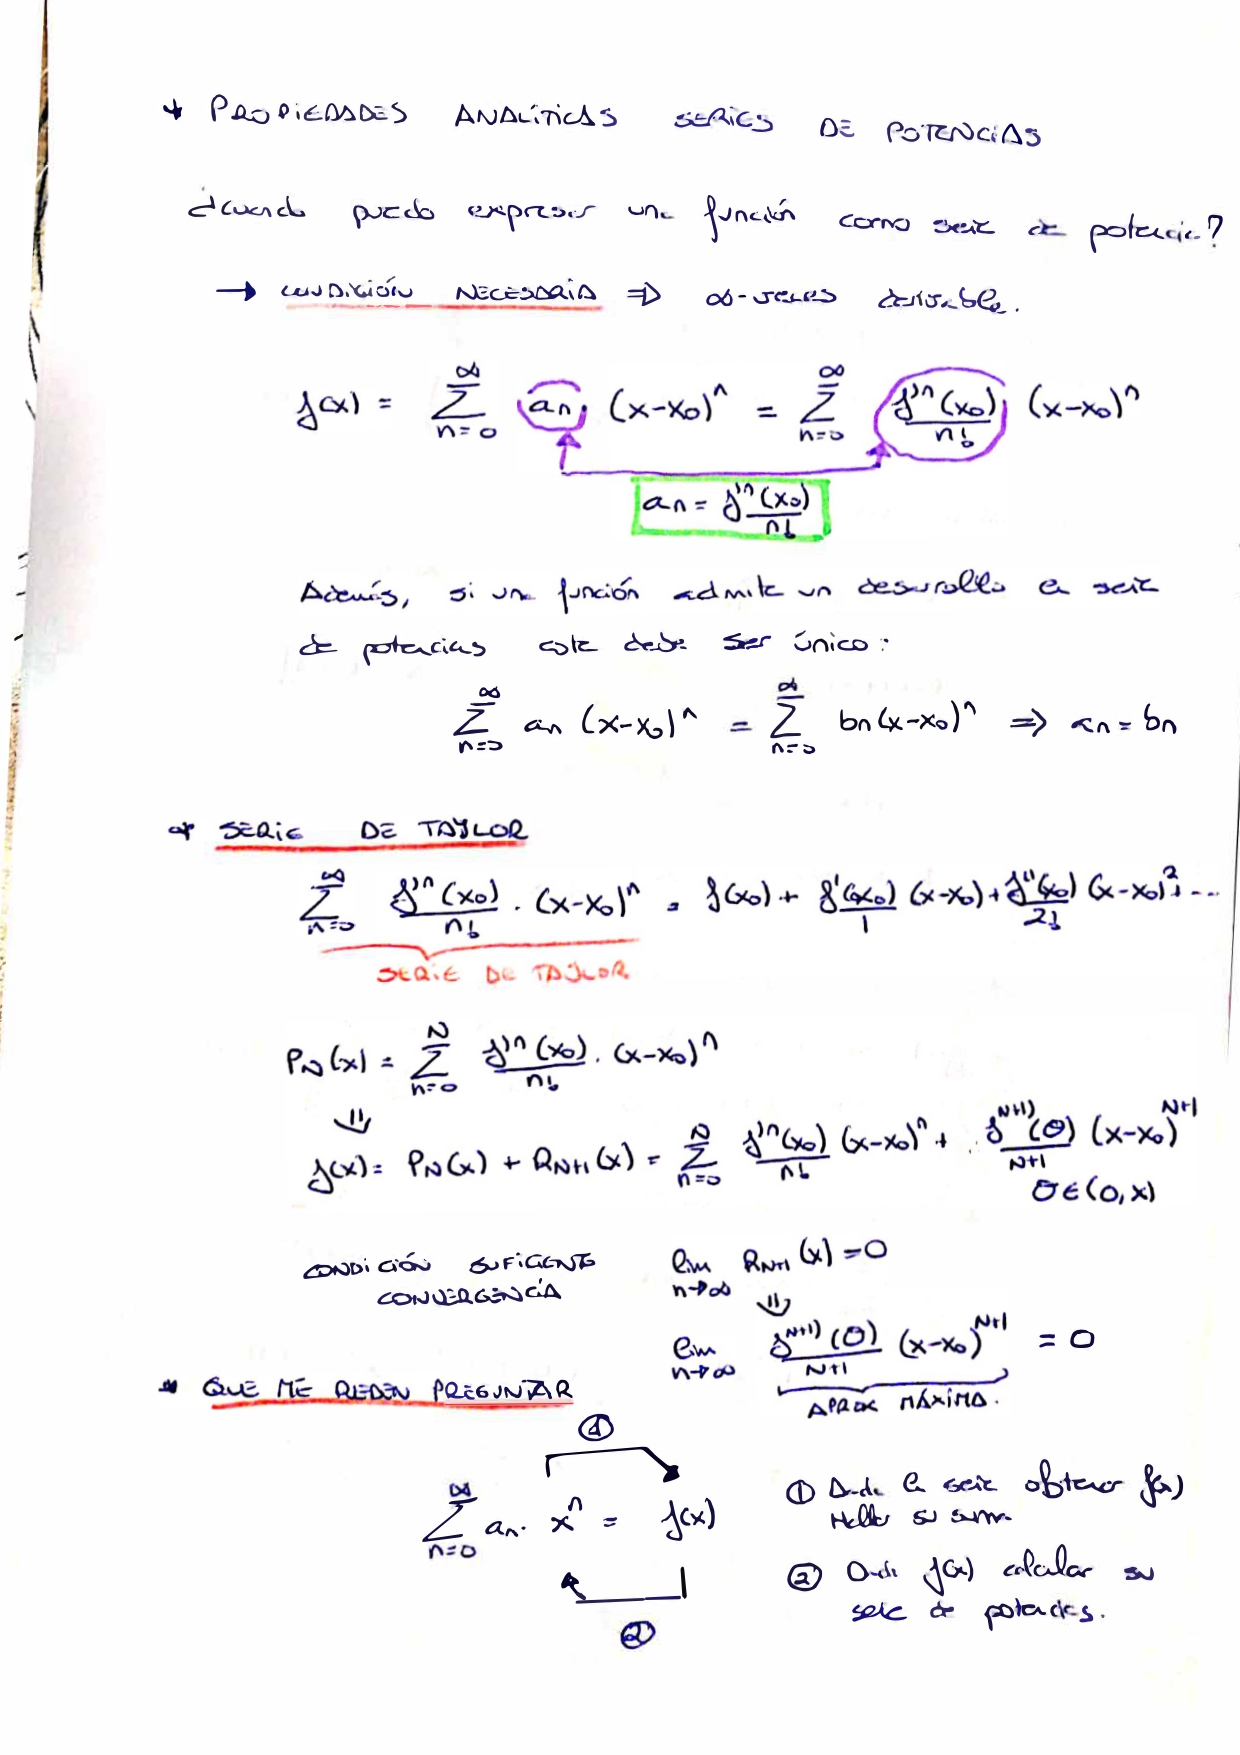 * PROPIEDADES ANALÍTICAS SERIES DE POTENCIAS
¿cuando puedo expresar una función como serie de potencia?
→ CONDICIÓN NECESARIA ⇒ ∞-veces derivable.
f(x) = ∑_{n=0}^{∞} an (x-x0)^n = ∑_{n=0}^{∞} f^{n)}(x0)/n! (x-x0)^n
an = f^{n)}(x0)/n!
Además, si una función admite un desarrollo en serie
de potencias este debe ser único:
∑_{n=0}^{∞} an (x-x0)^n = ∑_{n=0}^{∞} bn(x-x0)^n ⇒ an = bn
* SERIE DE TAYLOR
∑_{n=0}^{∞} f^{n)}(x0)/n! · (x-x0)^n = f(x0) + f'(x0)/1 (x-x0) + f''(x0)/2! (x-x0)^2 + ...
SERIE DE TAYLOR
PN(x) = ∑_{n=0}^{N} f^{n)}(x0)/n! · (x-x0)^n
⇓
f(x) = PN(x) + RN+1(x) = ∑_{n=0}^{N} f^{n)}(x0)/n! (x-x0)^n + f^{N+1)}(θ)/N+1 (x-x0)^{N+1}
θ∈(0,x)
CONDICIÓN SUFICIENTE CONVERGENCIA
lim_{n→∞} RN+1(x) = 0
⇓
lim_{n→∞} f^{N+1)}(θ)/N+1 (x-x0)^{N+1} = 0
APROX MÁXIMA.
* QUE ME PUEDEN PREGUNTAR
①
∑_{n=0}^{∞} an · x^n = f(x)
②
① Dada la serie obtener f(x)
Hallar su suma
② Dada f(x) calcular su
serie de potencias.